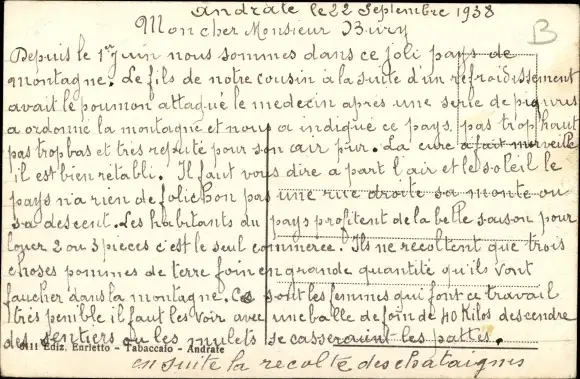 Andrate le 22 Septembre 1938
Mon cher Monsieur Bury
B
Depuis le 1er Juin nous sommes dans ce joli pays de
montagne. Le fils de notre cousin à la suite d'un refroidissement
avait le poumon attaqué le medecin après une serie de piqures
a ordonné la montagne et nous a indiqué ce pays, pas trop haut
pas trop bas et très reputé pour son air pur. La cure a fait merveille
il est bien retabli. Il faut vous dire a part l'air et le soleil le
pays n'a rien de folichon pas une rue droite sa monte ou
sa descent. Les habitants du pays profitent de la belle saison pour
louer 2 ou 3 pieces c'est le seul commerce. Ils ne recoltent que trois
choses pommes de terre foin en grande quantité qu'ils vont
faucher dans la montagne. Ce sont les femmes qui font ce travail
très penible il faut les voir avec une balle de foin de 40 Kilos descendre
des sentiers ou les mulets se casseraient les pattes.
6111 Ediz. Enrietto - Tabaccaio - Andrate
ensuite la recolte des chataignes